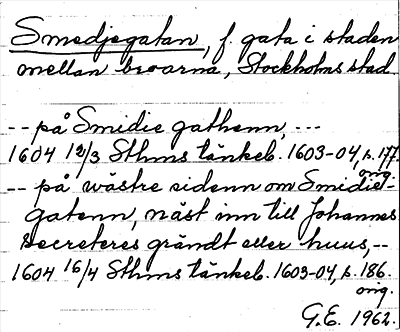 Smedjegatan, f. gata i staden
mellan broarna, Stockholms stad
-- på Smidie gathenn, ---
1604 12/3 Sthms tänkeb. 1603-04, s. 177.
orig.
-- på wästre sidenn om Smidie-
gatenn, näst inn till Johannes
secreteres grändt eller huus, --
1604 16/4 Sthms tänkeb. 1603-04, s. 186.
orig.
G.E. 1962.